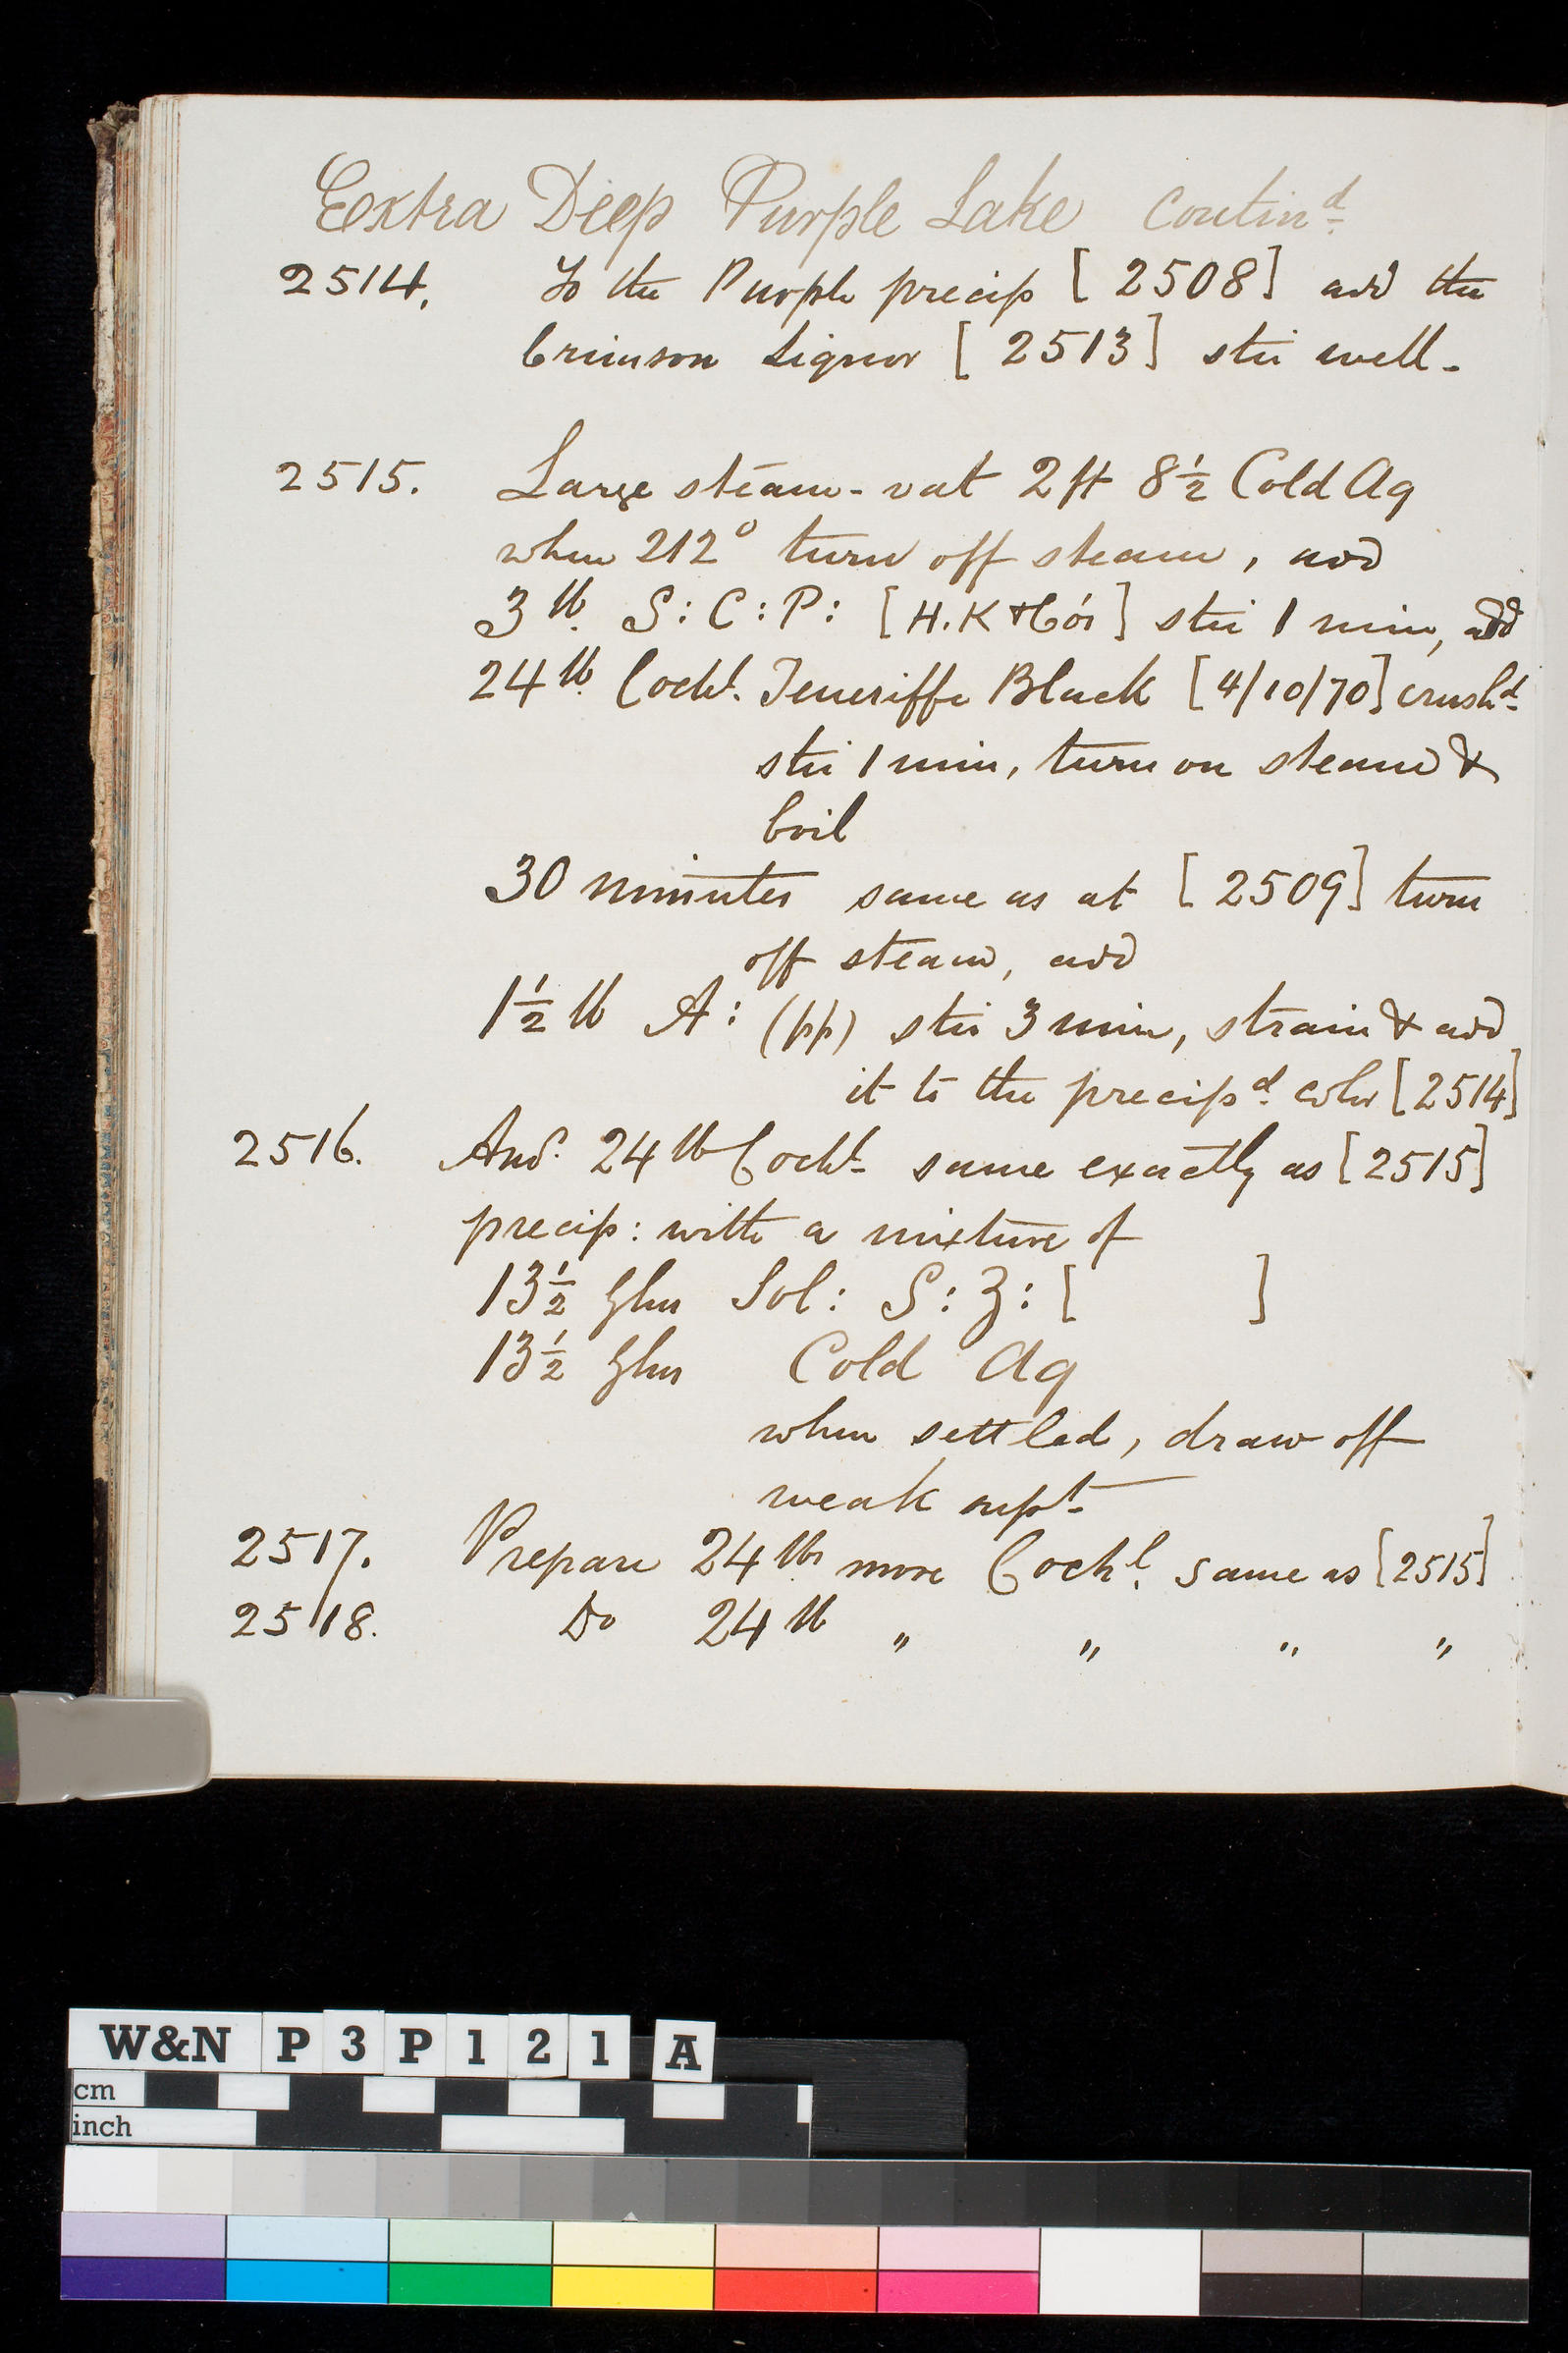 Extra Deep Purple Lake contin^d
2514. To the Purple precip [ 2508 ] add the
Crimson Liquor [ 2513 ] stir well -
2515. Large steam-vat 2 ft 8½ Cold Aq
when 212° turn off steam, add
3 lb. S: C: P: [ H. K & Co's ] stir 1 min, add
24 lb. Cochl. Teneriffe Black [ 4/10/70 ] crush^d
stir 1 min, turn on steam &
boil
30 minutes same as at [ 2509 ] turn
off steam, add
1½ lb A: (pp) stir 3 min, strain & add
it to the precip^d. color [ 2514 ]
2516. And. 24 lb Cochl. same exactly as [ 2515 ]
precip: with a mixture of
13½ Glns Sol: S: Z: [ ]
13½ Glns Cold Aq
when settled, draw off
weak supt.
2517. Prepare 24 lbs more Cochl. same as [ 2515 ]
2518. Do 24 lb " " " "
W&N P3P121 A
cm
inch